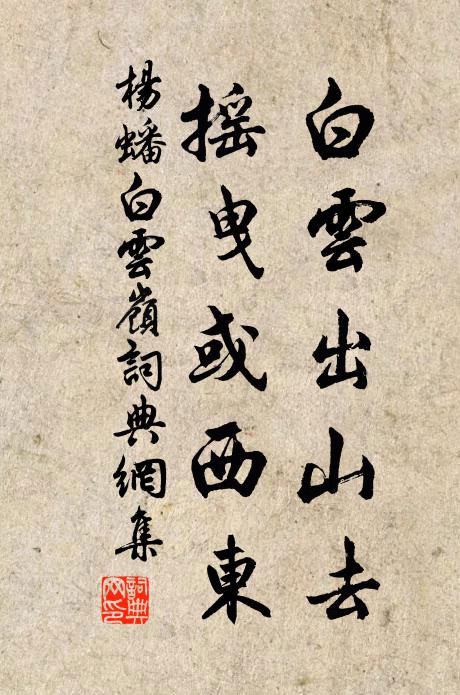 白雲出山去
搖曳或西東
楊蟠白雲嶺詞典網集
詞典
网印